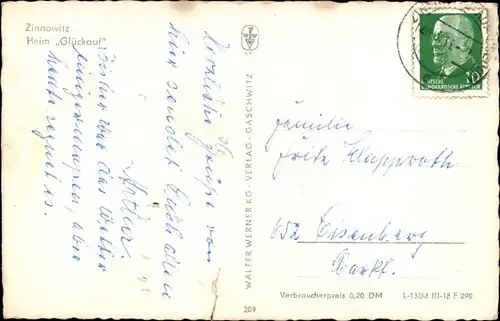 Zinnowitz
Heim „Glückauf"
Herzliche Grüße von
hier sendet Euch allen
Bisher war das Wetter
aber
heute regnet es.
WALTER WERNER KG · VERLAG · GASCHWITZ
209
DEUTSCHE
DEMOKRATISCHE REPUBLIK
10
Familie
Fritz Klapproth
652 Eisenberg
Markt.
Verbraucherpreis 0,20 DM
L-13/64 III-18 F 290